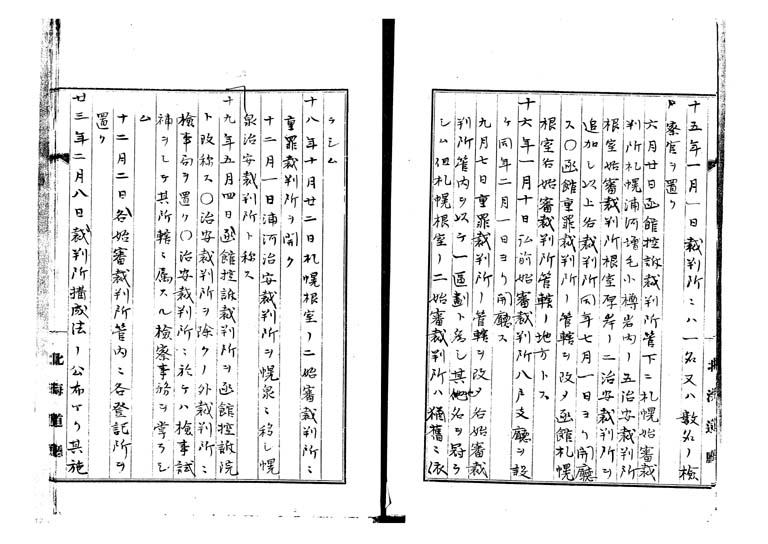 十五年一月一日裁判所ニハ一名又ハ数名ノ検
察官ヲ置ク
六月廿日函館控訴裁判所管下ニ札幌始審裁
判所札幌浦河増毛小樽岩内ノ五治安裁判所
根室始審裁判所根室厚岸ノ二治安裁判所ヲ
追加シ以上各裁判所同年七月一日ヨリ開廳
ス〇函館重罪裁判所ノ管轄ヲ改メ函館札幌
根室各始審裁判所管轄ノ地方トス
十六年一月十日弘前始審裁判所八戸支廳ヲ設
ケ同年二月一日ヨリ開廳ス
九月七日重罪裁判所ノ管轄ヲ改メ各始審裁
判所管内ヲ以テ一區劃ト為シ其他名ヲ冠ラ
シム但札幌根室ノ二始審裁判所ハ猶舊ニ依
ラシム
十八年十月廿二日札幌根室ノ二始審裁判所ニ
重罪裁判所ヲ開ク
十二月一日浦河治安裁判所ヲ幌泉ニ移シ幌
泉治安裁判所ト称ス
十九年五月四日函館控訴裁判所ヲ函館控訴院
ト改称ス〇治安裁判所ヲ除クノ外裁判所ニ
検事局ヲ置ク〇治安裁判所ニ於テハ検事試
補ヲシテ其所轄ニ属スル検察事務ヲ掌ラシ
ム
十二月二日各始審裁判所管内ニ各登記所ヲ
置ク
廿三年二月八日裁判所構成法ノ公布アリ其施
北海道廳
北海道廳